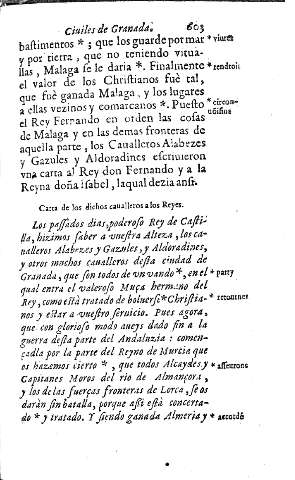 Ciuiles de Granada. 603
bastimentos *; que los guarde por mar * viures
y por tierra, que no teniendo vitua-
llas, Malaga se le daria *. Finalmente * rendroit
el valor de los Christianos fuè tal,
que fuè ganada Malaga, y los lugares
a ellas vezinos y comarcanos *. Puesto * circon-
uoisins
el Rey Fernando en orden las cosas
de Malaga y en las demas fronteras de
aquella parte, los Caualleros Alabezes
y Gazules y Aldoradines escriuieron
vna carta al Rey don Fernando y a la
Reyna doña isabel, laqual dezia ansi.
Carta de los dichos caualleros a los Reyes.
Los passados dias, poderoso Rey de Casti-
lla, hizimos saber a vuestra Alteza, los ca-
ualleros Alabezes y Gazules, y Aldoradines,
y otros muchos caualleros desta ciudad de
Granada, que son todos de vn vando *, en el * party
qual entra el valeroso Muça hermano del
Rey, como està tratado de boluerse * Christia- * retourner
nos y estar a vuestro seruicio. Pues agora,
que con glorioso modo aueys dado fin a la
guerra desta parte del Andaluzia: comen-
çadla por la parte del Reyno de Murcia que
os hazemos cierto *, que todos Alcaydes y * asseurons
Capitanes Moros del rio de Almançora,
y los de las fuerças fronteras de Lorca, se os
daràn sin batalla, porque assi està concerta-
do * y tratado. Y siendo ganada Almeria y * accordé